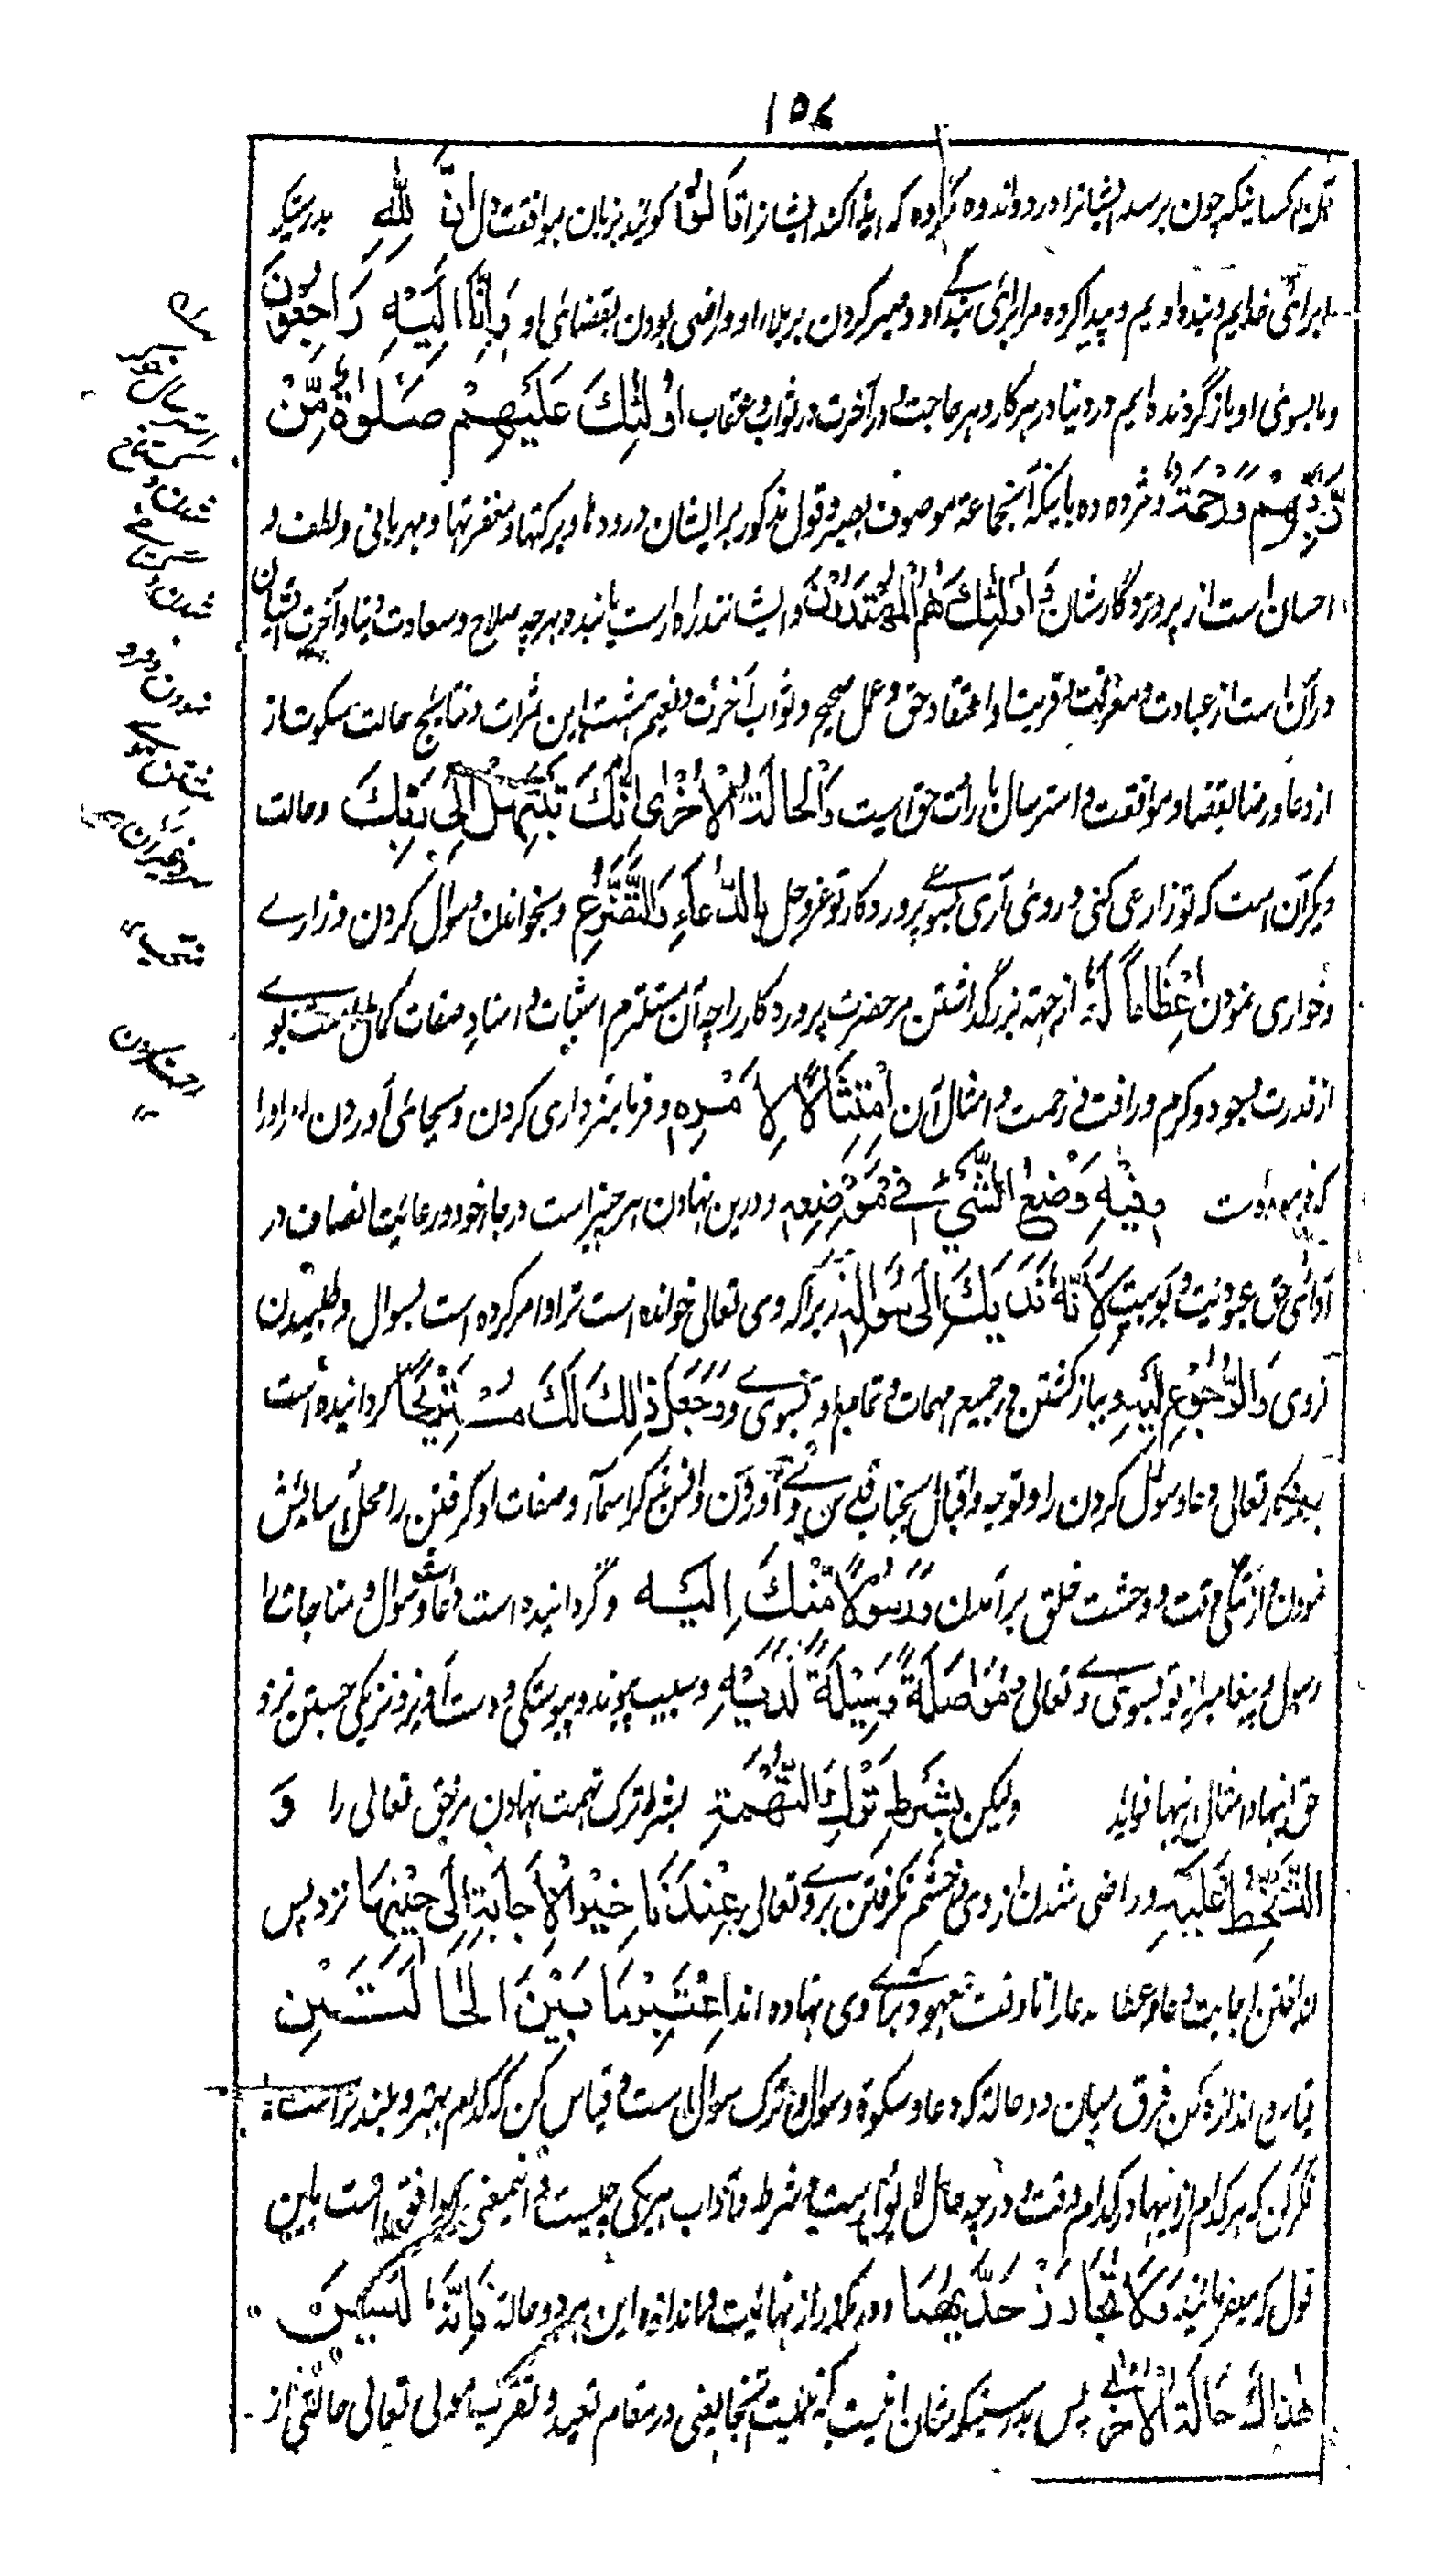 ۱۵۷
کسانیکه چون برسد ایشانرا درد و اندوه که ایذا کند ایشانرا قَالُوْا گویند بزبان بموافقت دل اِنَّا لِلّٰهِ بدرستیکه
ما برائی خدائیم و بنده اوئیم و پیدا کرده مر او برائی بندگی او و صبر کردن بر بلاء او و راضی بودن بقضائی او وَاِنَّا اِلَیْهِ رَاجِعُوْنَ
و ما بسوئی او باز گردنده ایم در دنیا در هر کار و هر حاجت و در آخرت در ثواب و عقاب اُولٰئِكَ عَلَیْهِمْ صَلَوٰةٌ مِّنْ
رَّبِّهِمْ وَرَحْمَةٌ و مژده ده باینکه آنجماعة موصوف بصبر و قول مذکور بر ایشان درودها و برکتها و مغفرتها و مهربانی و لطف و
احسان است از پروردگار شان وَ اُولٰئِكَ هُمُ الْمُهْتَدُوْنَ و ایشانند راه راست یابنده بهرچه صلاح و سعادت دنیا و آخرت ایشان
در آن است از عبادت و معرفت و قربت و اعتقاد حق و عمل صحیح و ثواب آخرت و نعیم بهشت این ثمرات و نتایج حالت سکوت از
از دعا و رضا بقضا و موافقت و استرسال با رادت حق است وَالْحَالَةُ الْاُخْرٰی اِنَّكَ تَبْتَهِلُ اِلٰی رَبِّكَ و حالت
دیگر آن است که تو زاری کنی و روئی آری بسوئے پروردگار تو عز و جل بِالدُّعَاءِ وَالتَّضَرُّعِ و بخواندن و سوال کردن و زارے
و خواری نمودن اِعْظَامًا لَهٗ از جهته بزرگداشتن مر حضرت پروردگار را چه آن مستلزم اثبات و اسناد صفات کمال است بوے
از قدرت و جود و کرم و رافت و رحمت و امثال آن اِمْتِثَالًا لِاَمْرِهٖ و فرمانبرداری کردن و بجائی آوردن امر او را
که فرموده است وَفِیْهِ وَضْعُ الشَّیْءِ فِیْ مَوْضِعِهٖ و درین نهادن هر چیز است در جاء خود و رعایت انصاف در
ادائی حق عبودیت و ربوبیت لِاَنَّهٗ نَدَبَكَ اِلٰی سُوَالِهٖ زیراکه وی تعالی خوانده است ترا و امر کرده است بسوال و طلبیدن
از وی وَالرُّجُوْعِ اِلَیْهِ و بباز گشتن در جمیع مهمات و تمامها و بسوئے وی وَجَعَلَ ذٰلِكَ لَكَ مُسْتَرِیْحًا گردانیده است
پروردگار تعالی دعا و سوال کردن را و توجه و اقبال بجناب قدس وے آوردن و انس بذکر اسماء و صفات او گرفتن را محل آسایش
نمودن و از تنگی وقت و وحشت خلق برآمدن وَرَسُوْلًا مِّنْكَ اِلَیْهِ و گردانیده است دعا و سوال و مناجات را
رسول و پیغامبر از تو بسوئے وی تعالی وَمُوَاصَلَةً وَسِیْلَةً لَدَیْهِ و سبب پیوند و پیوستگی و دست آویز و نزدیکی جستن نزد
حق اینها و امثال اینها فواید ولیکن بِشَرْطِ تَرْكِ التُّهْمَةِ بشرط ترک تهمت نهادن مر حق تعالی را وَ
التَّسَخُّطِ عَلَیْهِ و راضی شدن از وی و خشم نگرفتن بر وے تعالی عِنْدَ تَاخِیْرِ الْاِجَابَةِ اِلٰی حِیْنِهَا نزد پس
انداختن اجابت دعا و عطا مدعا را تا وقت معهود که برائے وی نهاده اند اِعْتَبِرْ مَا بَیْنَ الْحَالَتَیْنِ
قیاس و اندازه کن فرق میان دو حاله که دعا و سکوة و سوال و ترک سوال است و قیاس کن که کدام بهتر و بلند تر است
فکر کن که هر کدام از اینها در کدام وقت و در چه حال و شرط و آداب هر یکی چیست و اینمعنی موافق است باین
قول که میفرمایند وَلَا تُجَاوِزْ حَدَّیْهِمَا و در مگذر از نهایت و اندازه این هر دو حاله فَاِنَّهٗ لَیْسَ
هُنَاكَ حَالَةٌ اُخْرٰی پس بدرستیکه شان اینست که نیست آنجا یعنی در مقام تعبد و تقرب بمولی تعالی حالتی از
شدن و
شدن و